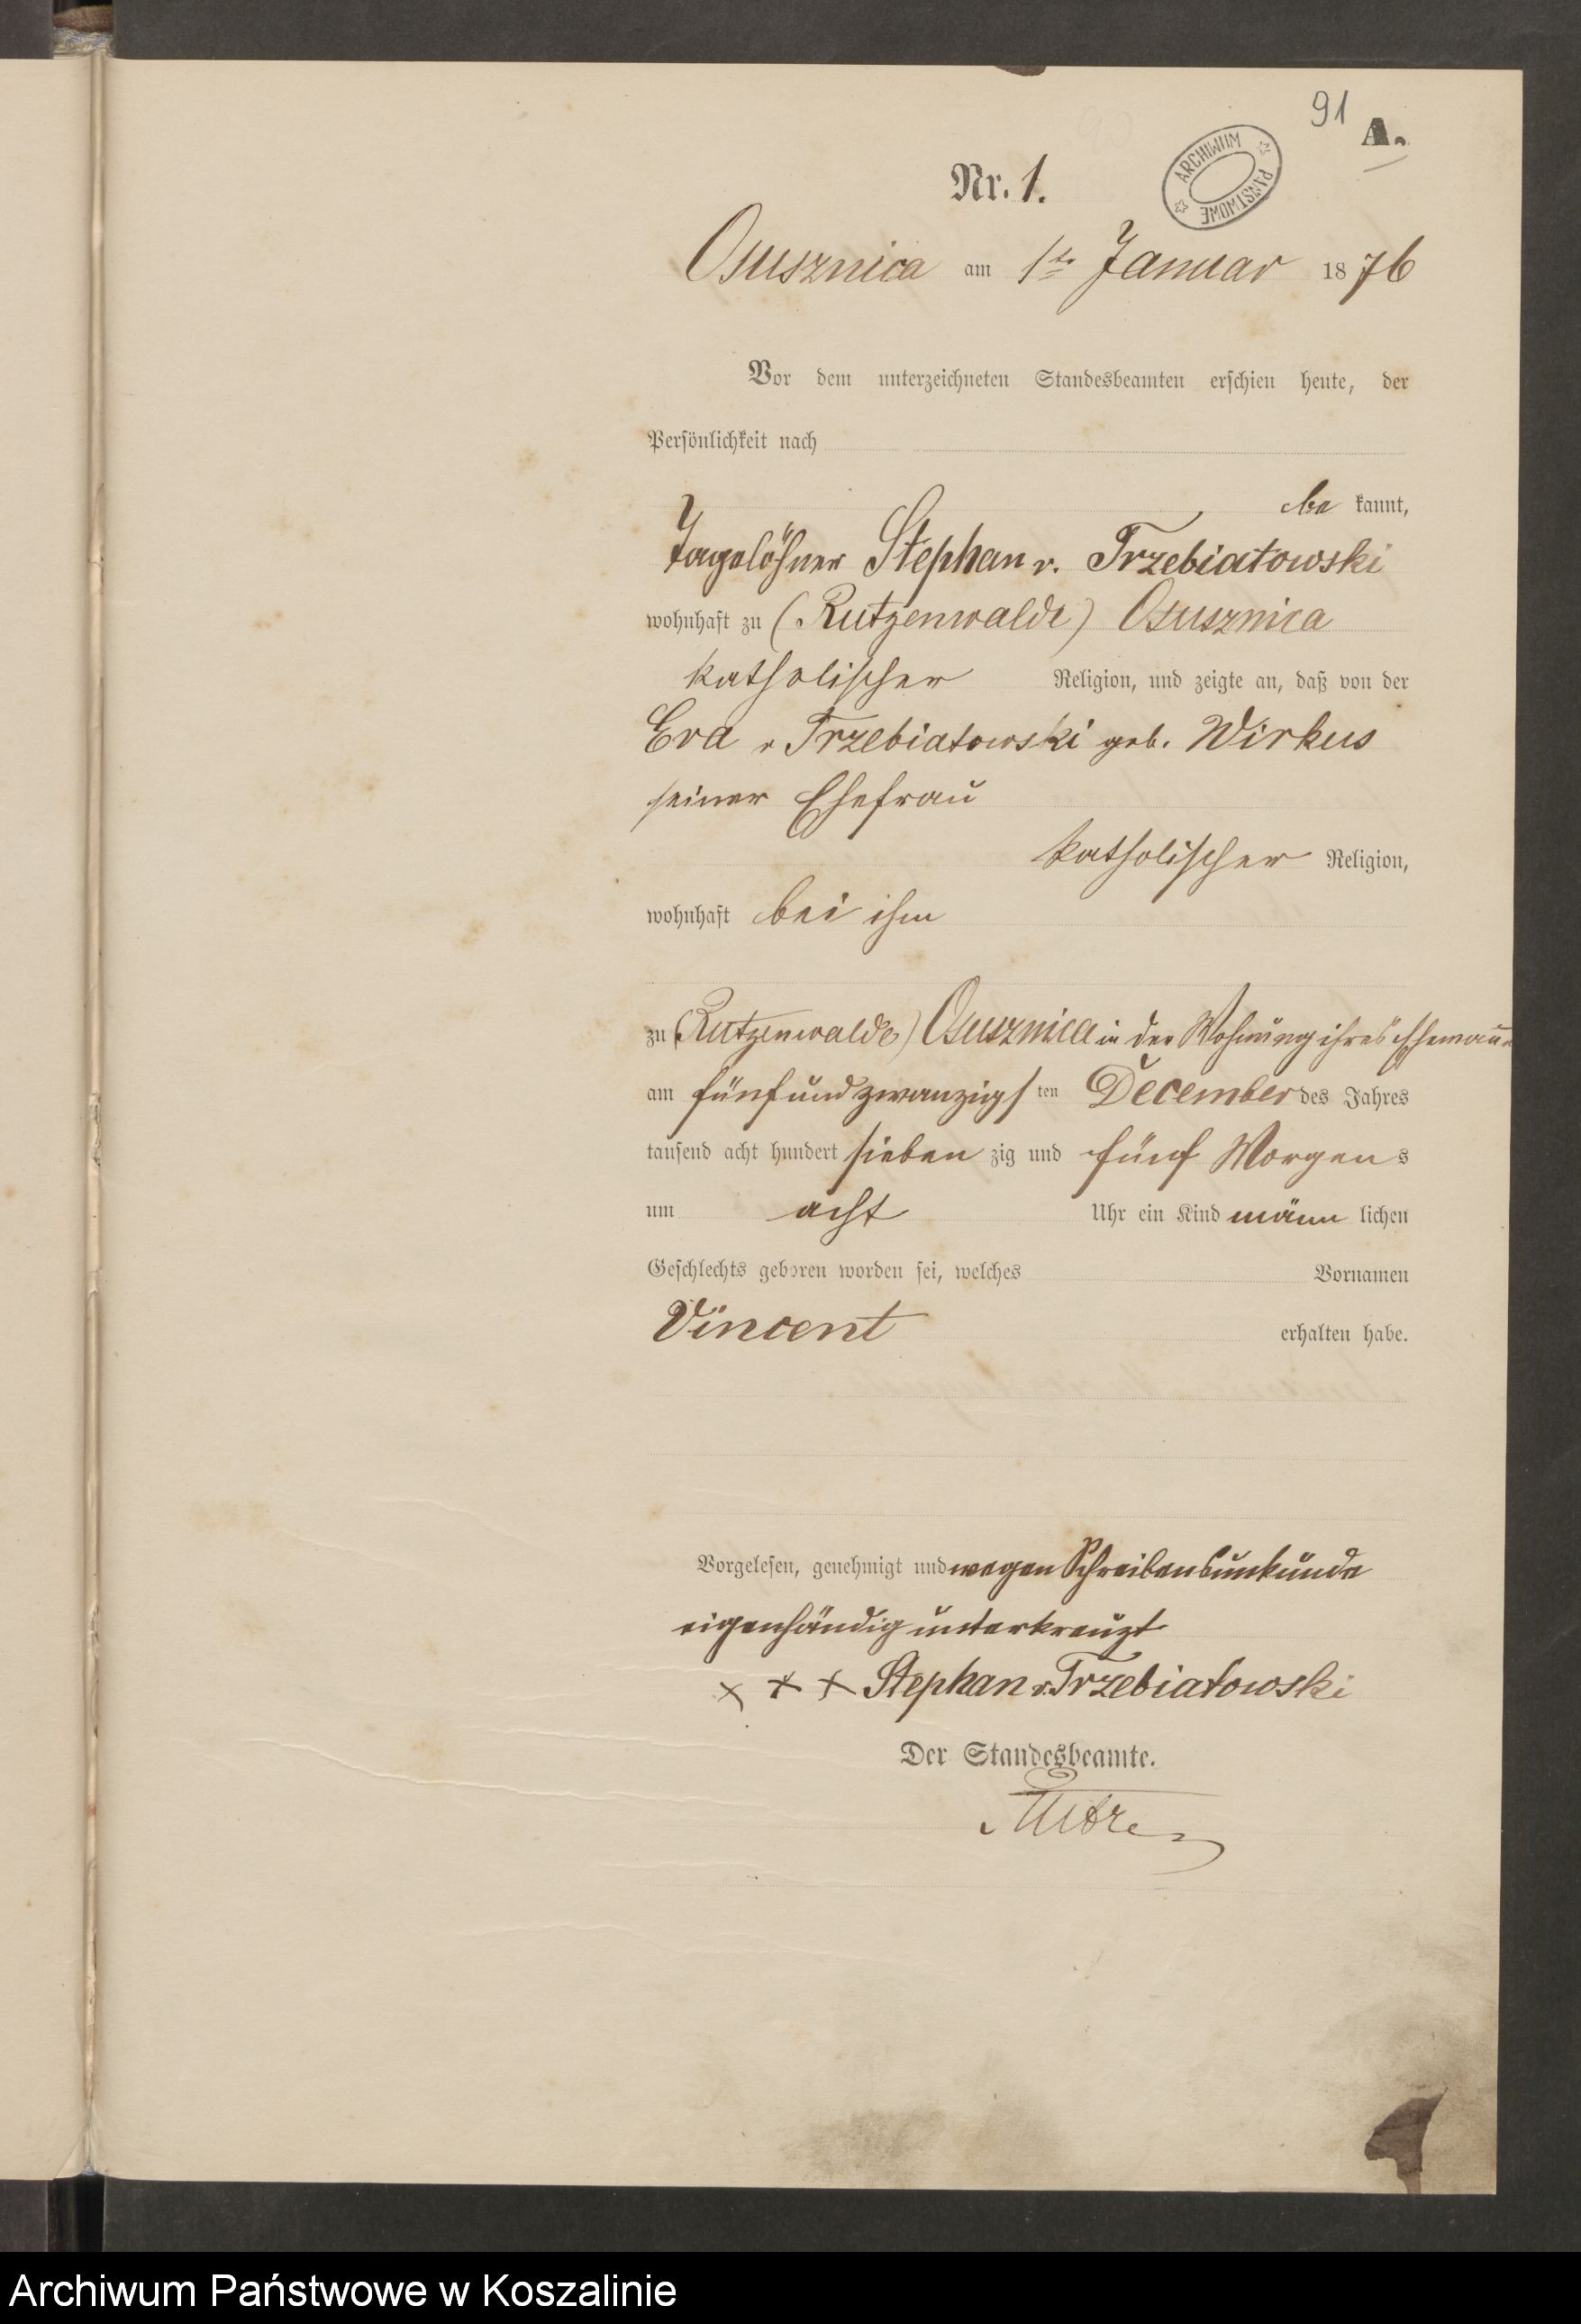 91
A.
ARCHIWUM PAŃSTWOWE
Nr. 1.
Osusznica am 1te Januar 1876
Vor dem unterzeichneten Standesbeamten erschien heute, der
Persönlichkeit nach
be kannt,
Tagelöhner Stephan v. Trzebiatowski
wohnhaft zu (Rutzenwalde) Osusznica
katholischer Religion, und zeigte an, daß von der
Eva v Trzebiatowski geb. Wirkus
seiner Ehefrau
katholischer Religion,
wohnhaft bei ihm
zu (Rutzenwalde) Osusznica in der Wohnung ihres Ehemanns
am fünf und zwanzigs ten December des Jahres
tausend acht hundert sieben zig und fünf Morgens
um acht Uhr ein Kind männ lichen
Geschlechts geboren worden sei, welches Vornamen
Vincent erhalten habe.
Vorgelesen, genehmigt und wegen Schreibensunkunde
eigenhändig unterkreuzt
x x x Stephan v. Trzebiatowski
Der Standesbeamte.
Archiwum Państwowe w Koszalinie